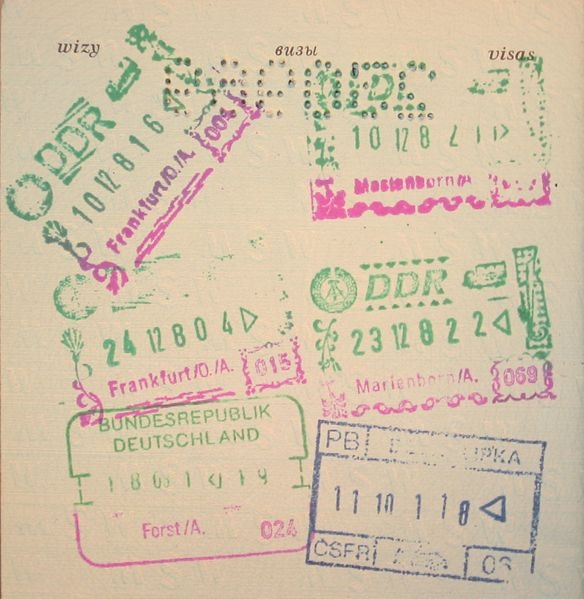 wizy
визы
visas
DDR
10 12 8 1 6
Frankfurt/O./A.
005
DDR
10 12 8
Marienborn/A
24 12 8 0 4
Frankfurt/O./A.
015
DDR
23 12 8 2 2
Marienborn/A.
069
BUNDESREPUBLIK
DEUTSCHLAND
Forst/A.
024
PB
11 10 1 1 8
CSFR